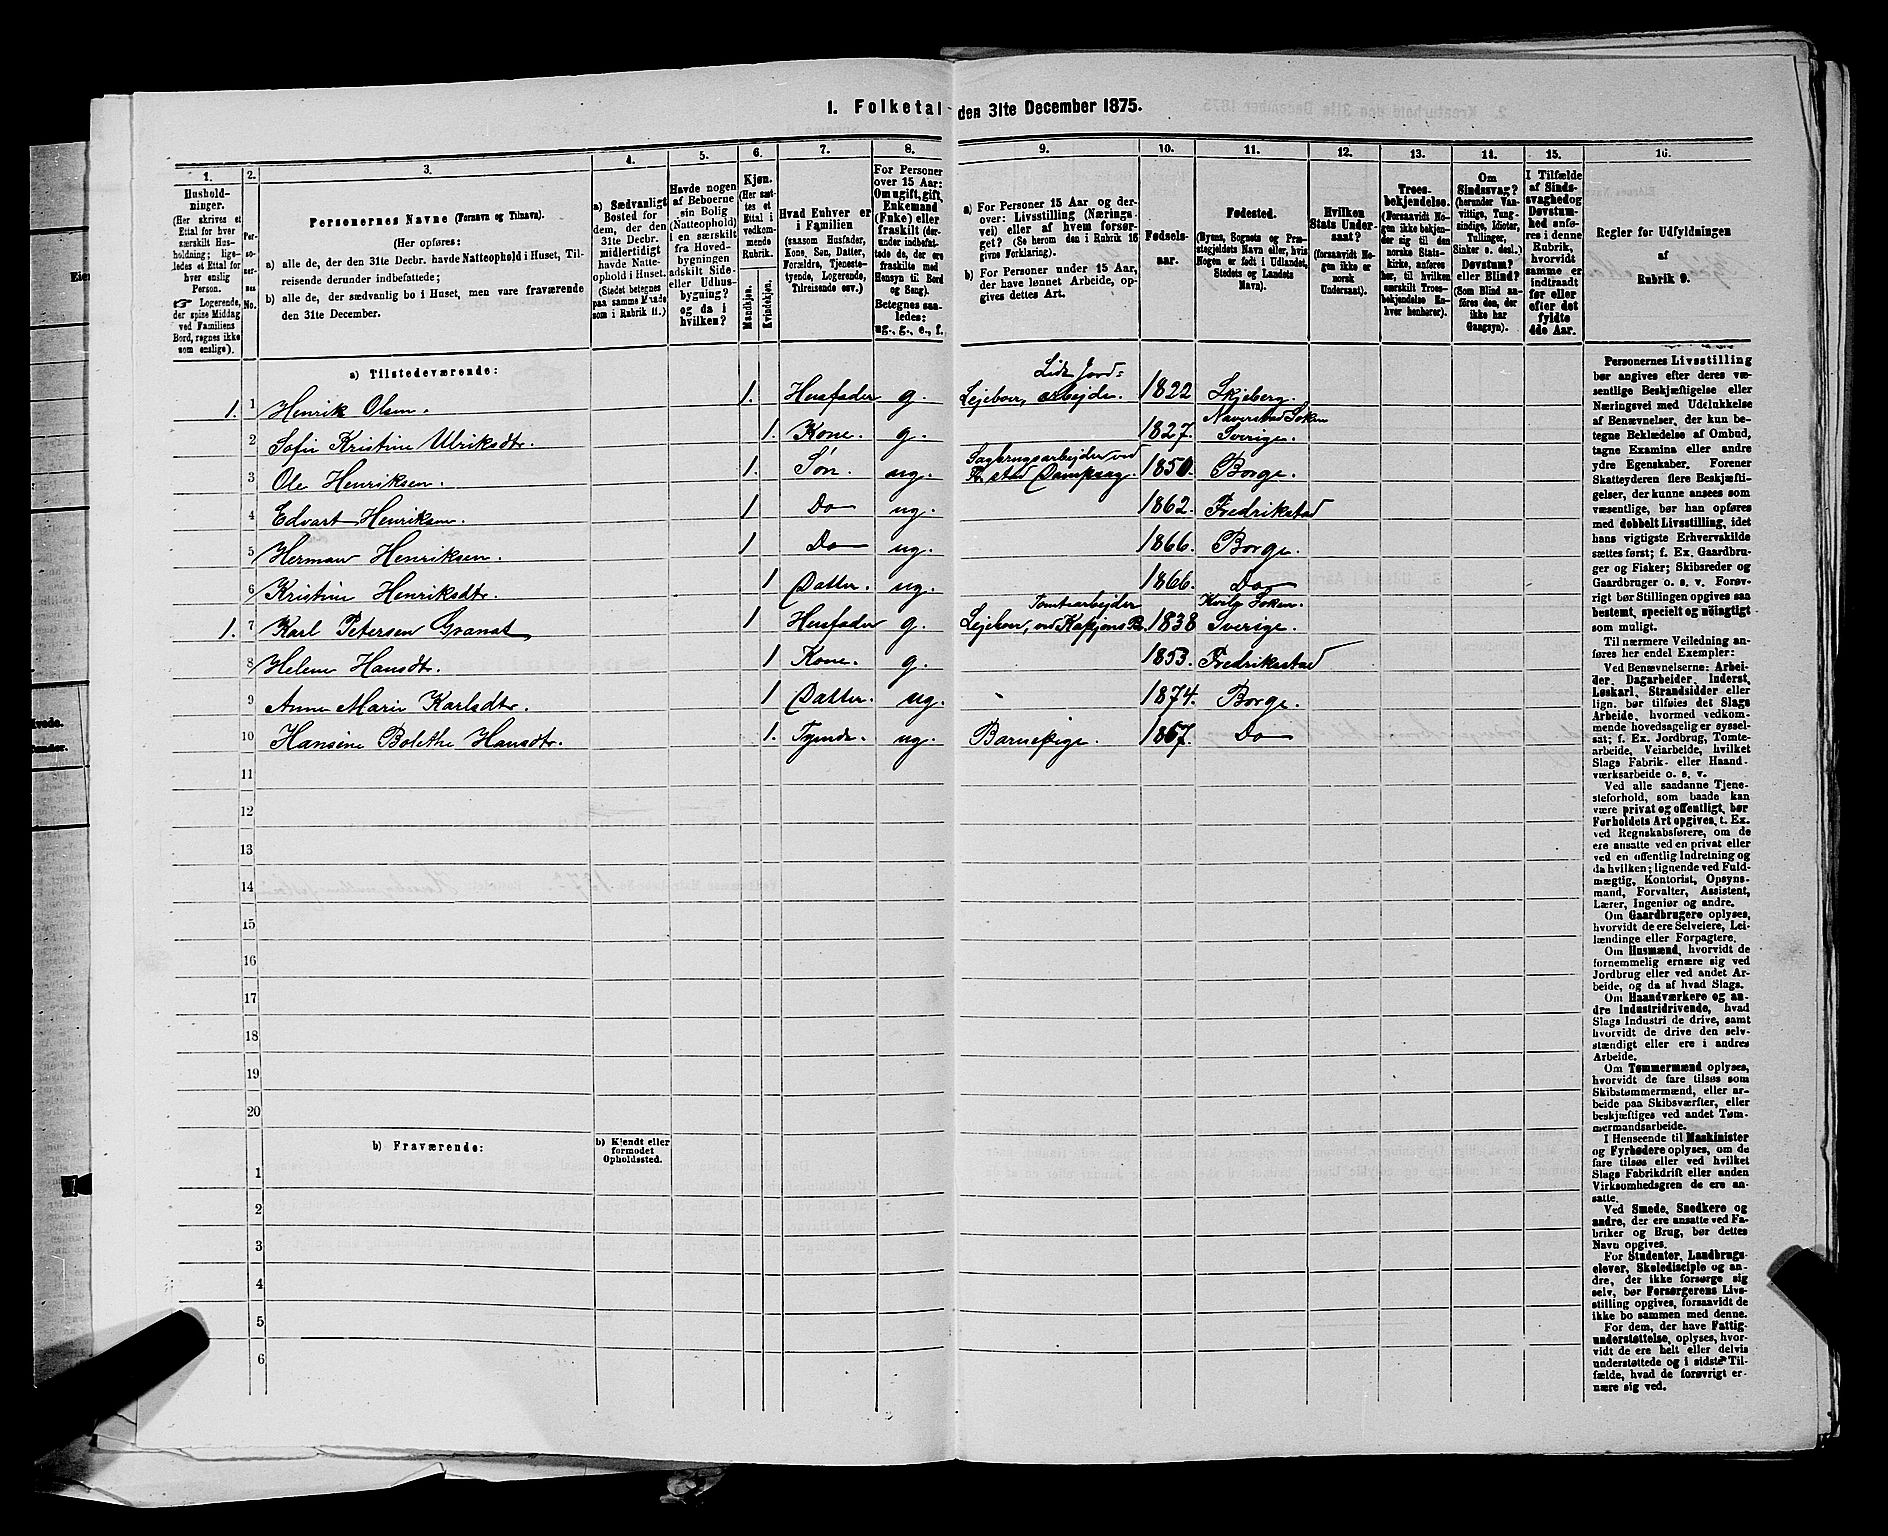 1. Folketal den 31te December 1875.
1.
2.
3.
4.
5.
6.
7.
8.
9.
10.
11.
12.
13.
14.
15.
16.
Hushold-
ninger.
(Her skrives et
Ettal for hver
særskilt Hus-
holdning; lige-
ledes et Ettal for
hver enslig
Person.
☞ Logerende,
der spise Middag
ved Familiens
Bord, regnes ikke
som enslige).
Per-
so-
ner-
nes
No.
Personernes Navne (Fornavn og Tilnavn).
(Her opføres:
a) alle de, der den 31te Decbr. havde Natteophold i Huset, Til-
reisende derunder indbefattede;
b) alle de, der sædvanlig bo i Huset, men vare fraværende
den 31te December.
a) Sædvanligt
Bosted for
dem, der den
31te Decbr.
midlertidigt
havde Natte-
ophold i Huset.
(Stedet betegnes
paa samme Maade
som i Rubrik 11.)
Havde nogen
af Beboerne
sin Bolig
(Natteophold)
i en særskilt
fra Hoved-
bygningen
adskilt Side-
eller Udhus-
bygning?
og da i
hvilken?
Kjøn.
(Her sæt-
tes et
Ettal i
vedkom-
mende
Rubrik.
Mandkjøn.
Kvindekjøn.
Hvad Enhver er
i Familien
(saasom Husfader,
Kone, Søn, Datter,
Forældre, Tjeneste-
tyende, Logerende,
Tilreisende osv.)
For Personer
over 15 Aar:
Om ugift, gift,
Enkemand
(Enke) eller
fraskilt (der-
under indbefat-
tede de, der ere
fraskilte med
Hensyn til Bord
og Seng).
Betegnes saa-
ledes:
ug., g., e., f.
a) For Personer 15 Aar og der-
over: Livsstilling (Nærings-
vei) eller af hvem forsør-
get? (Se herom den i Rubrik 16
givne Forklaring).
b) For Personer under 15 Aar,
der have lønnet Arbeide, op-
gives dettes Art.
Fødsels-
aar.
Fødested.
(Byens, Sognets og Præ-
stegjeldets Navn eller, hvis
Nogen er født i Udlandet,
Stedets og Landets
Navn).
Hvilken
Stats Under-
saat?
(forsaavidt No-
gen ikke er
norsk
Undersaat).
Troes-
bekjendelse.
(Forsaavidt No-
gen ikke bekjen-
der sig til den
norske Stats-
kirke, anføres
her, til hvilken
særskilt Troes-
bekjendelse En-
hver henhører).
Om
Sindssvag?
(herunder Van-
vittige, Tung-
sindige, Idioter,
Tullinger,
Sinker o. desl.)
Døvstum?
eller Blind?
(Som Blind an-
føres den, der
ikke har
Gangsyn).
I Tilfælde
af Sinds-
svaghed og
Døvstum-
hed anfø-
res i denne
Rubrik,
hvorvidt
samme er
indtraadt
før eller
efter det
fyldte
4de Aar.
Regler for Udfyldningen
af
Rubrik 9.
a) Tilstedeværende:
1. 1 Henrik Olsen. 1. Husfader g. Leieboer, Lidt Jord= arbejde. 1822 Skjeberg.
2 Sofie Kristine Ulriksdtr. 1. Kone. g. 1827. Naverstad Soken Sverige.
3 Ole Henriksen. 1. Søn. ug. Sagbrugsarbejder ved Dampsag. 1850. Borge.
4 Edvart Henriksen. 1 Do ug. 1862. Fredrikstad
5 Herman Henriksen. 1 Do ug. 1866. Borge.
6 Kristine Henriksdtr. 1 Datter. ug. 1866. Do
1. 7 Karl Petersen Granat 1 Husfader g. Leieboer, Tomtearbejder ved 1838 Soken. Sverige.
8 Helene Hansdtr. 1 Kone. g. 1853. Fredriksstad
9 Anne Marie Karlsdtr. 1 Datter. ug. 1874. Borge.
10 Hansine Bolethe Hansdtr. 1. Tyende. ug. Barnepige. 1867. Do
11
12
13
14
15
16
17
18
19
20
b) Fraværende:
b) Kjendt eller
formodet
Opholdssted.
1
2
3
4
5
6
Personernes Livsstilling
bør angives efter deres væ-
sentlige Beskjæftigelse eller
Næringsvei med Udelukkelse
af Benævnelser, der kun be-
tegne Beklædelse af Ombud,
tagne Examina eller andre
ydre Egenskaber. Forener
Skatteyderen flere Beskjæfti-
gelser, der kunne ansees som
væsentlige, bør han opføres
med dobbelt Livsstilling, idet
hans vigtigste Erhvervskilde
sættes først; f. Ex. Gaardbru-
ger og Fisker; Skibsreder og
Gaardbruger o. s. v. Forøv-
rigt bør Stillingen opgives saa
bestemt, specielt og nøiagtigt
som muligt.
Til nærmere Veiledning an-
føres her endel Exempler:
Ved Benævnelserne: Arbei-
der, Dagarbeider, Inderst,
Løskarl, Strandsidder eller
lign. bør tilføies det Slags
Arbeide, hvormed vedkom-
mende hovedsagelig er syssel-
sat; f. Ex. Jordbrug, Tomte-
arbeide, Veiarbeide, hvilket
Slags Fabrik- eller Haand-
værksarbeide o. s. v.
Ved alle saadanne Tjene-
steforhold, som baade kan
være privat og offentligt, bør
Forholdets Art opgives, t. Ex.
ved Regnskabsførere, om de
ere ansatte ved en privat eller
ved en offentlig Indretning og
da hvilken; lignende ved Fuld-
mægtig, Kontorist, Opsyns-
mand, Forvalter, Assistent,
Lærer, Ingeniør og andre.
Om Gaardbrugere oplyses,
hvorvidt de ere Selveiere, Lei-
lændinge eller Forpagtere.
Om Husmænd, hvorvidt de
fornemmelig ernære sig ved
Jordbrug eller ved andet Ar-
beide, og da af hvad Slags.
Om Haandværkere og an-
dre Industridrivende, hvad
Slags Industri de drive, samt
hvorvidt de drive den selv-
stændigt eller ere i andres
Arbeide.
Om Tømmermænd oplyses,
hvorvidt de fare tilsøs som
Skibstømmermænd, eller ar-
beide paa Skibsværfter, eller
beskjæftiges ved andet Tøm-
mermandsarbeide.
I Henseende til Maskinister
og Fyrbødere oplyses, om de
fare tilsøs eller ved hvilket
Slags Fabrikdrift eller anden
Virksomhedsgren de ere an-
satte.
Ved Smede, Snedkere og
andre, der ere ansatte ved Fa-
briker og Brug, bør dettes
Navn opgives.
For Studenter, Landbrugs-
elever, Skoledisciple og an-
dre, der ikke forsørge sig
selv, bør Forsørgerens Livs-
stilling opgives, forsaavidt de
ikke bo sammen med denne.
For dem, der have Fattig-
understøttelse, oplyses, hvor-
vidt de ere helt eller delvis
understøttede og i sidste Til-
fælde, hvad de forøvrigt er-
nære sig ved.